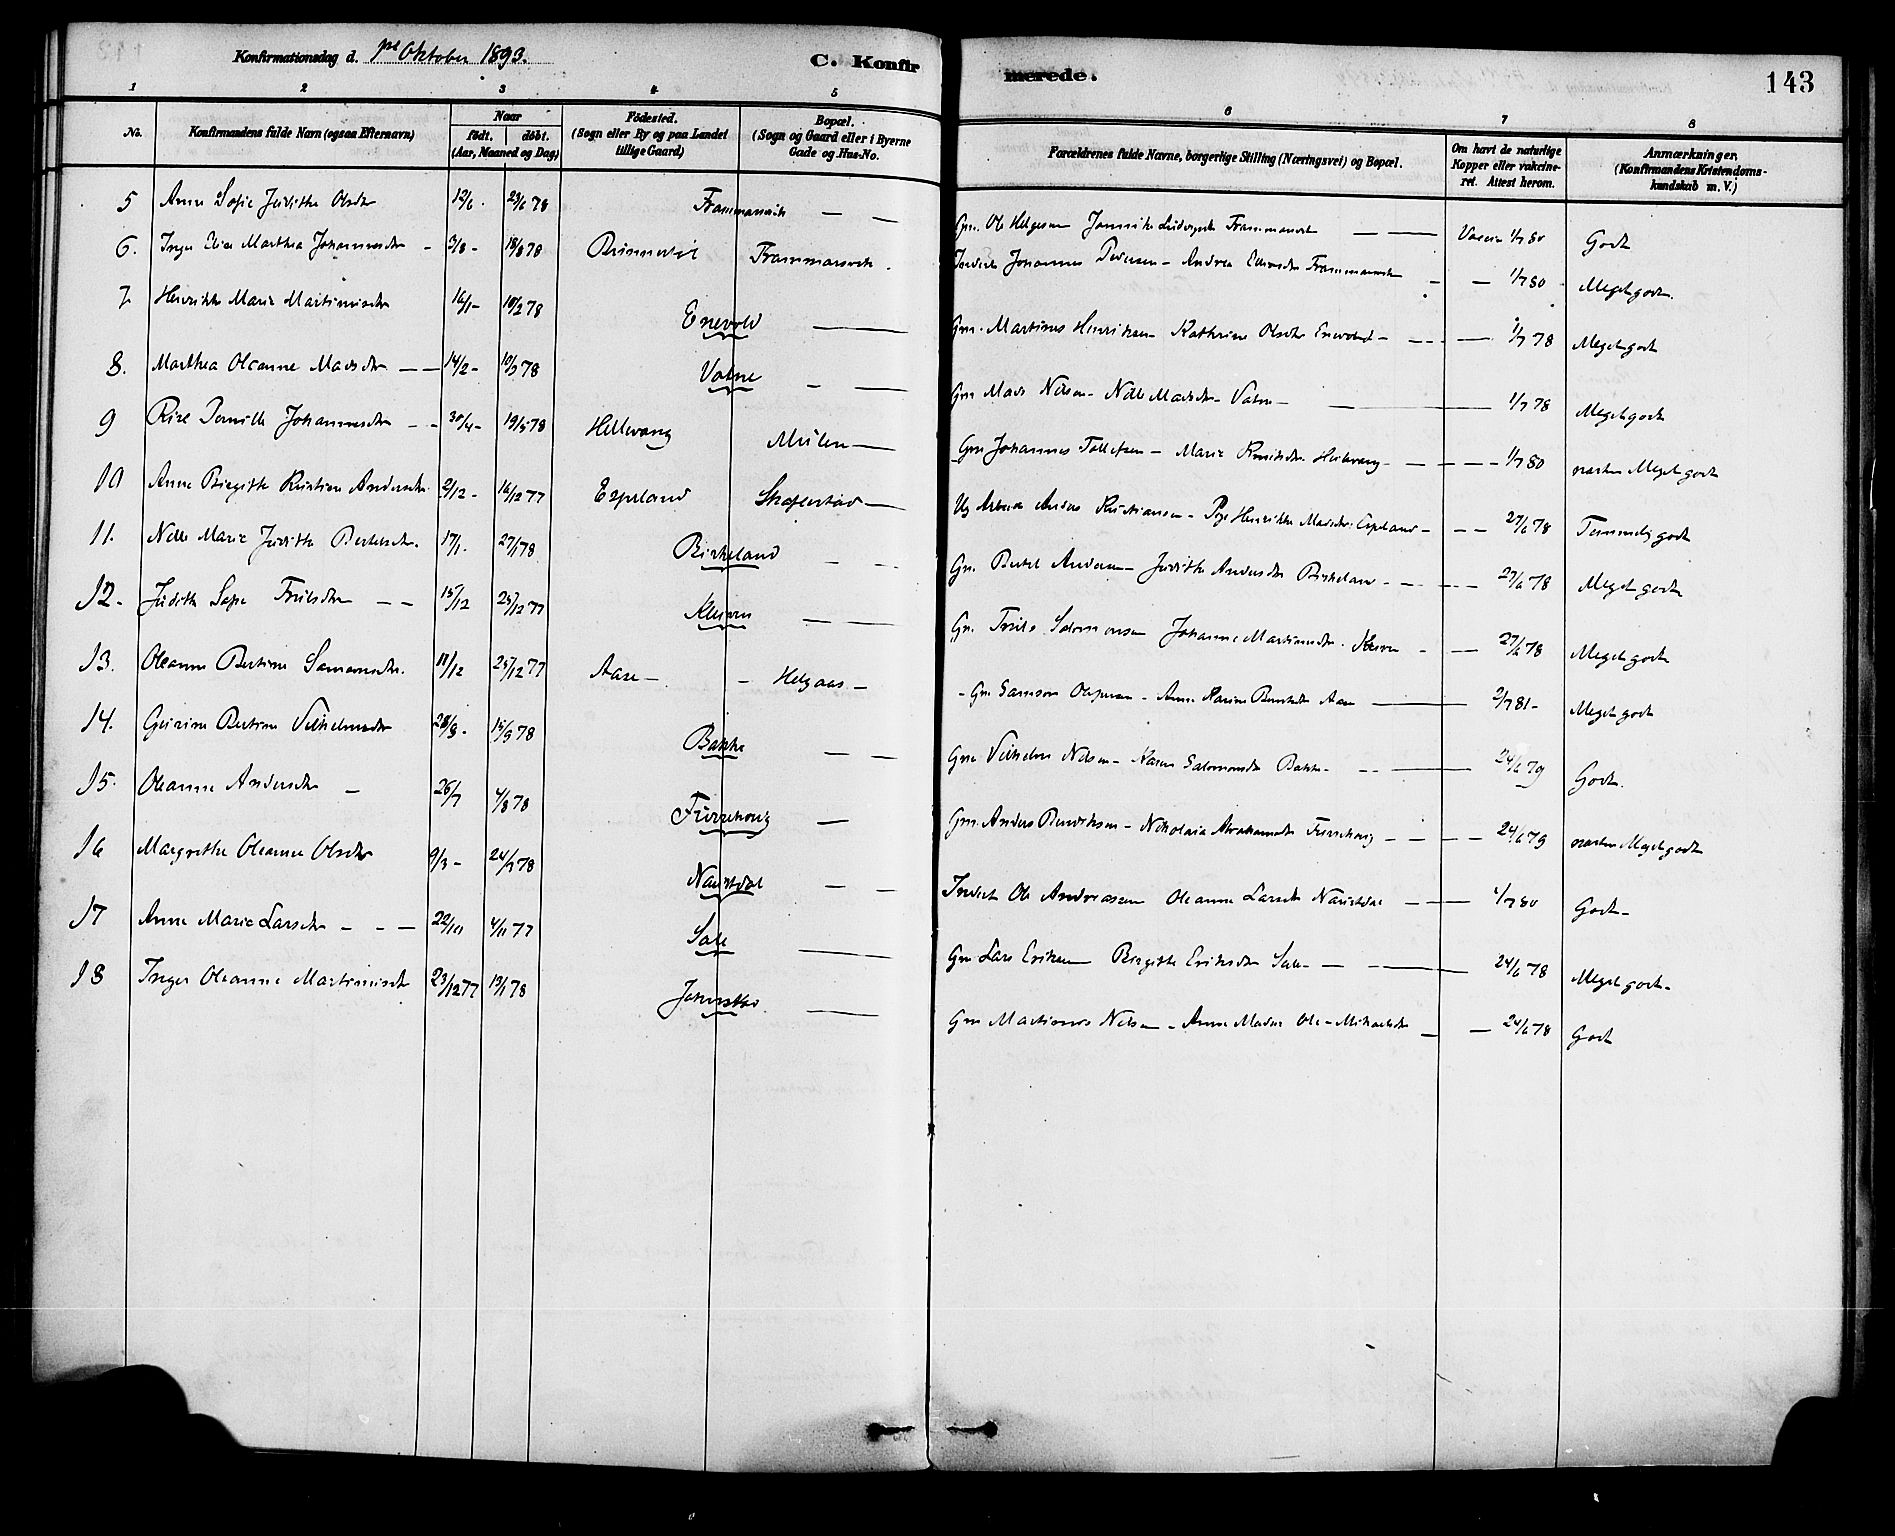 Konfirmationsdag d. 1ste Oktober 1893.
C. Konfir
merede.
143
1 2 3 4 5 6 7 8
No.
Konfirmandens fulde Navn (ogsaa Efternavn)
Naar
födt. döbt.
(Aar, Maaned og Dag)
Födested.
(Sogn eller By og paa Landet
tillige Gaard)
Bopæl.
(Sogn og Gaard eller i Byerne
Gade og Hus-No.
Forældrenes fulde Navne, borgerlige Stilling (Næringsvei) og Bopæl.
Om havt de naturlige
Kopper eller vakcine-
ret. Attest herom.
Anmærkninger.
(Konfirmandens Kristendoms-
kundskab m. V.)
5 Anne Sofie Judithe Olsdtr 12/6. 23/6 78 Frammarsvik — — Gm. Ole Helgesen Frammarsvik — — Vaccin 1/7 80 Godt
6. Inger Elise Marthea Johannesdtr - 3/8 - 18/8 78 Frammarsvik. Johannes Pedersen - Andrea Frammarsvik - — 1/7 80 Meget godt.
7. Henrikke Marie Martinusdtr 16/1 - 10/2 78 Enevold — Gm. Martinus Henriksen Kathrine Olsdtr Enevold - — — 1/7 78 Meget godt
8. Marthea Oleanne Madsdtr — — 14/2 - 10/3 78 Vatne - — Gm Mads Nilsen - Nille Madsdtr - Vatne - — 1/7 78 Meget godt
9 Pernille Johannesdtr - - 30/4 - 19/5 78 Hellevang Mulen — Gm Johannes Tollefsen - Marie - — — 1/7 80 næsten Meget godt
10 Anne Birgitte Kristine Andersdtr. 2/12 - 16/12 77 Espeland Skafenstad — Anders Kristiansen - Pige Henrikke Madsdtr Espeland - — 27/6 78 Temmelig godt
11. Nille Marie Judithe Bertelsdtr. 17/1. 27/1 78 Birkeland - — Gm. Bertel Andersen - Judithe Andersdtr Birkeland - - — 27/6 78 Meget godt
12. Judith Sofie Trulsdtr — — 15/12 25/12 77 — — Gm. Truls Salomonsen Johanne Martinusdtr. - — 27/6 78 Meget godt
13. Oleanne Bertine Samsonsdtr. 11/12 25/12 77 Aase — - Helgaas - - Gm Samson - Anne Aase — 2/7 81 - Meget godt
14. Bertine Vilhelmsdtr 28/8 - 15/9 78 Bakke — — Gm Vilhelm Nilsen - Karen Salomonsdtr Bakke - - — 24/6 79 Godt.
15. Oleanne Andersdtr - 26/7 4/8 78 Furrehoug — Gm. Anders Bendiksen - Nikolaia Abrahamsdtr Furrehoug - — 24/6 79 næsten Meget godt
16 Margrethe Oleanne Olsdtr 9/3 - 24/3 78 Naustdal — — Inderst Ole Andreassen Oleanne Larsdtr Naustdal — — 1/7 80 Godt -
17 Anne Marie Larsdtr - - — 22/10 4/11 77 Sale — Gm Lars Eriksen Birgitte Eriksdtr Sale - — — 24/6 78 Meget godt -
18 Inger Oleanne Martinusdtr 23/12 77 13/1 78 — Gm Martinus Nilsen - Anne - Mikaelsdtr — — 24/6 78 Godt